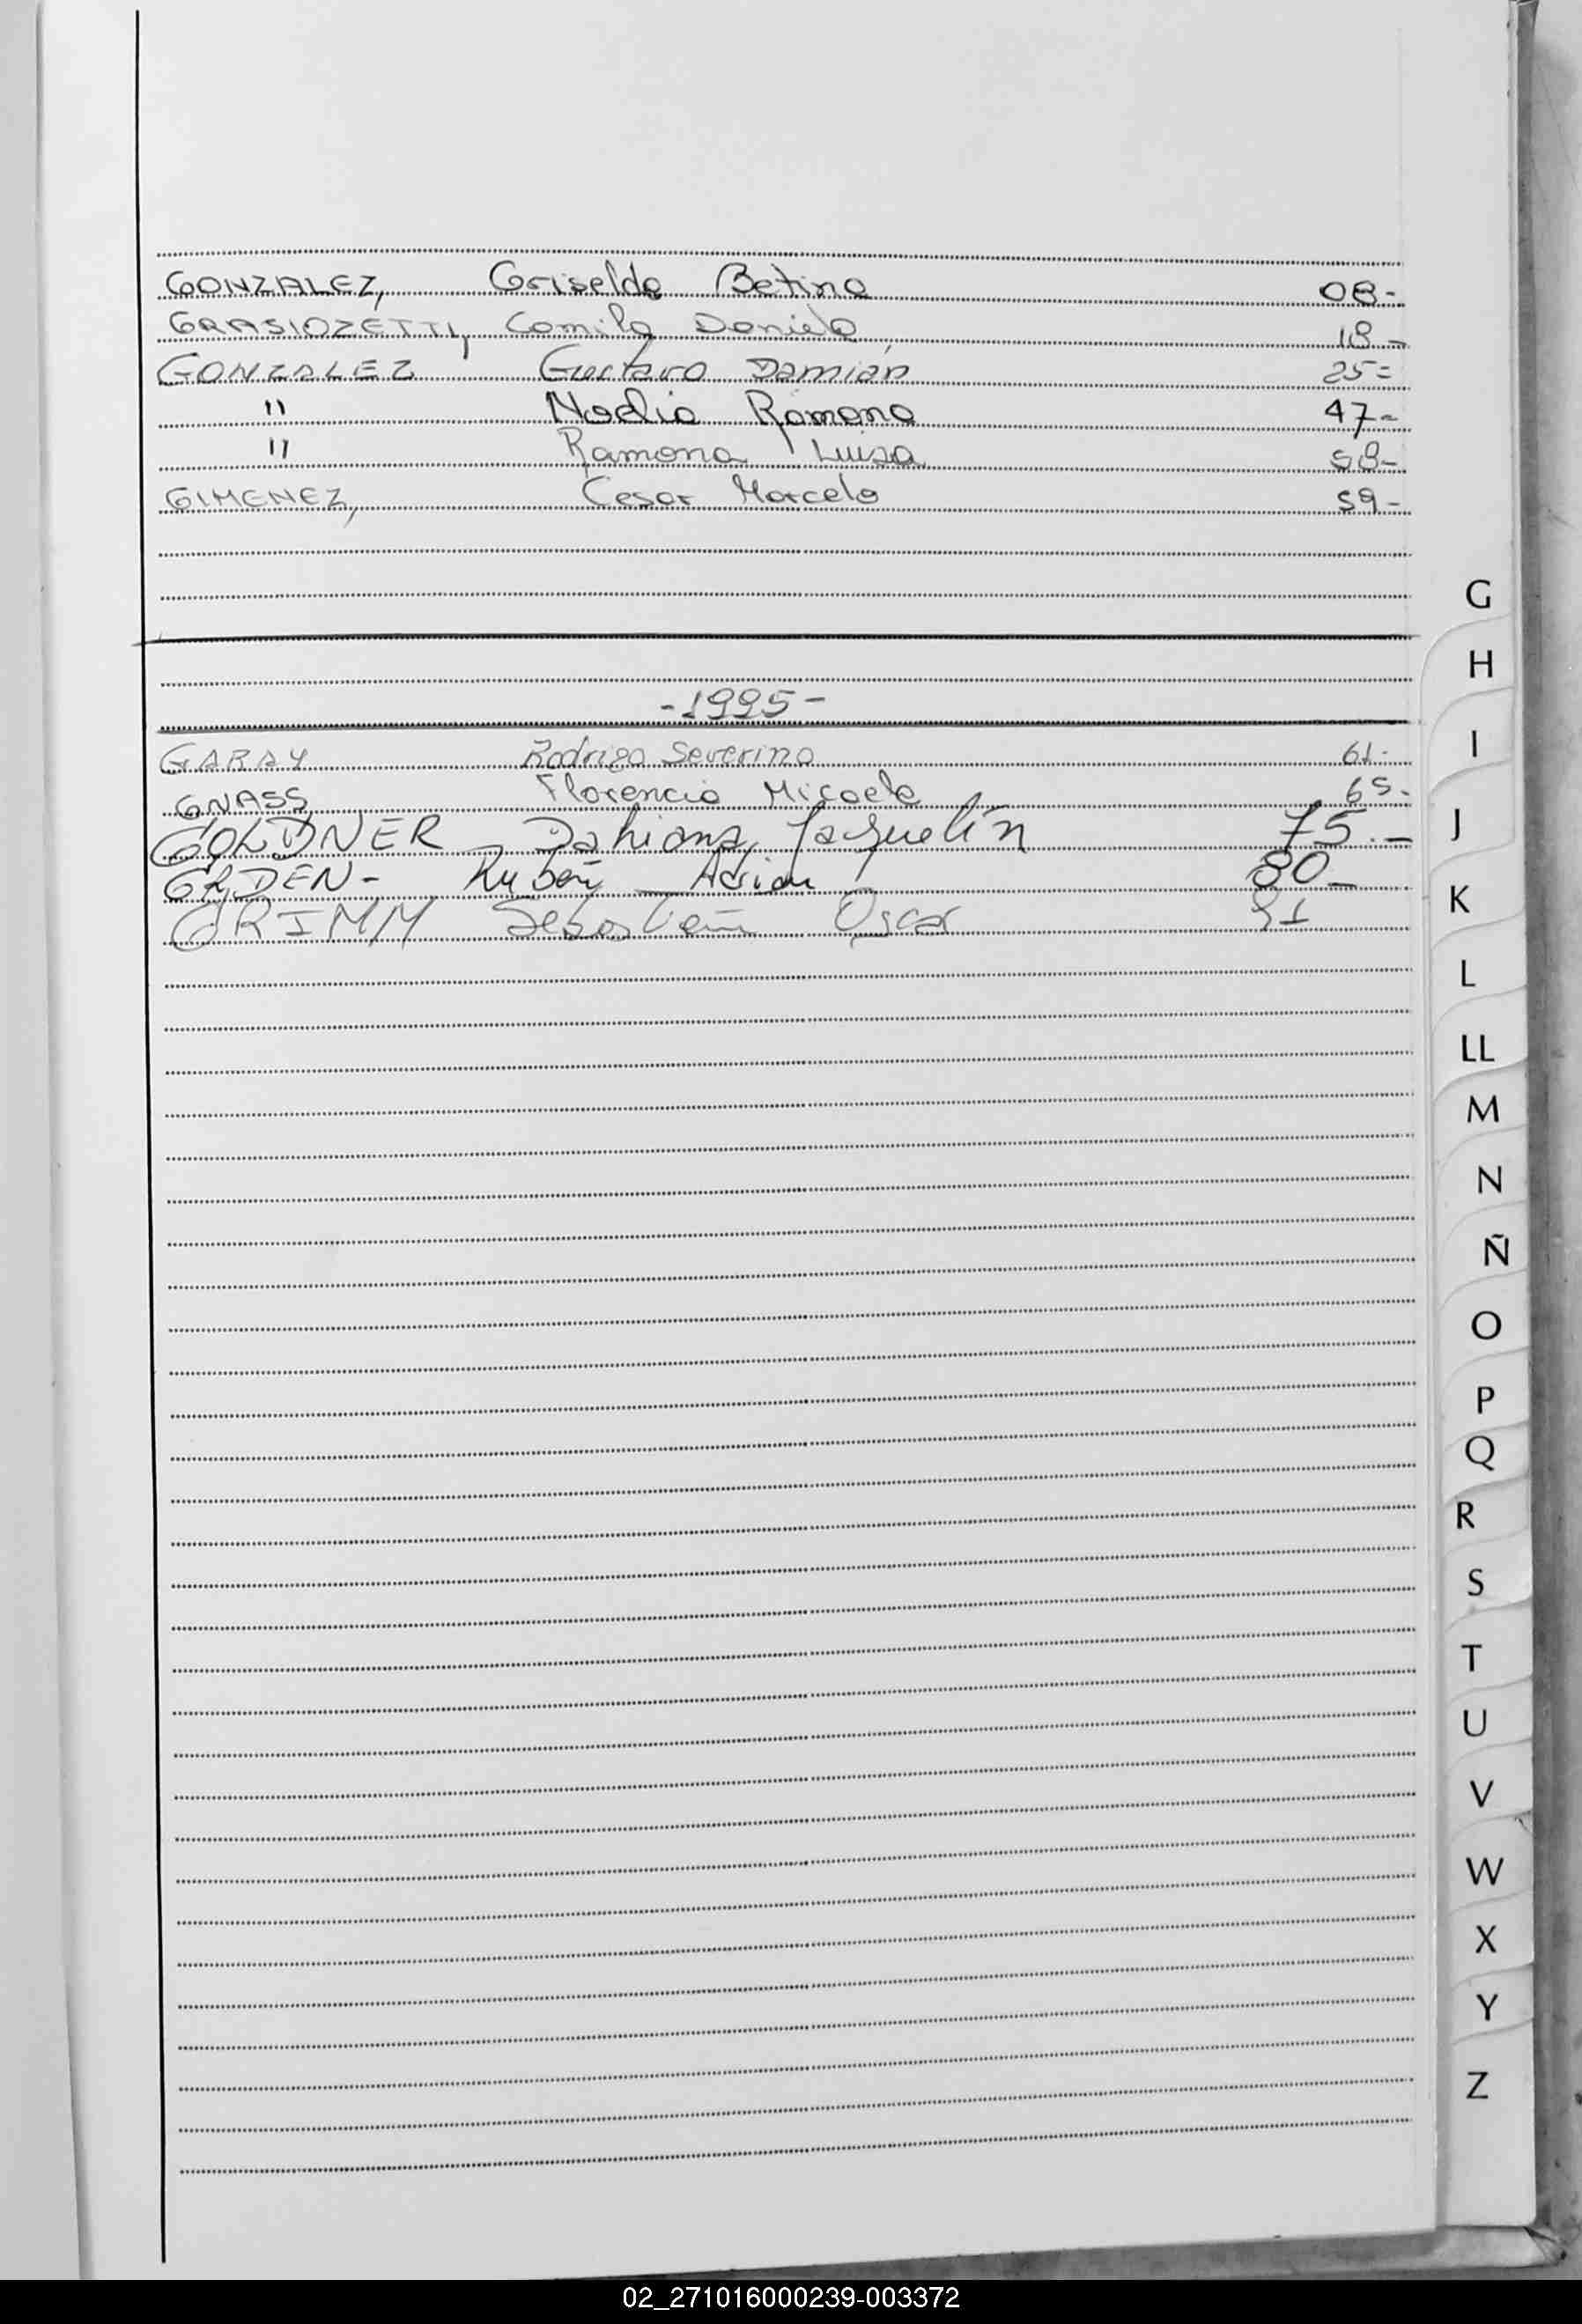 GONZALEZ, Griselda Betina 08-
GRASIOZETTI, Camila Daniela 18-
GONZALEZ Gustavo Damián 25=
" Nadia Ramona 47-
" Ramona Luisa 58-
GIMENEZ, Cesar Marcelo 59-
-1995-
GARAY Rodrigo Severino 61-
GNASS Florencia Micaela 65-
GOLDNER Dahiana Jaquelín 75.-
Rubén Adrian 80-
GRIMM Sebastián Oscar 91
G
H
I
J
K
L
LL
M
N
Ñ
O
P
Q
R
S
T
U
V
W
X
Y
Z
02_271016000239-003372